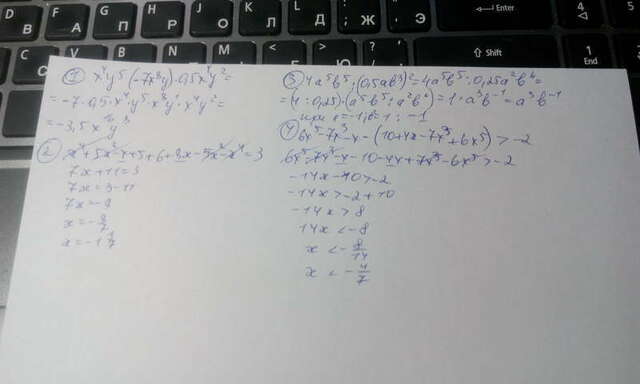 D
F
G
H
J
K
L
;
Enter
В
А
П
Р
О
Л
Д
Ж
Э
Shift
1) x⁴y⁵·(-7x⁸y)·0,5x⁴y²=
= -7·0,5·x⁴y⁵·x⁸y¹·x⁴y²=
= -3,5x¹⁶y⁸
2) x⁴+5x²-x+5+6+8x-5x²-x⁴=3
7x+11=3
7x=3-11
7x=-8
x=-8/7
x=-1 1/7
3) 4a⁵b⁵:(0,5ab³)²=4a⁵b⁵:0,25a²b⁶=
=(4:0,25)·(a⁵b⁵:a²b⁶)=1·a³b⁻¹=a³b⁻¹
при a=-1, b=1: -1
4) 6x⁵-7x³-x-(10+4x-7x³+6x⁵)>-2
6x⁵-7x³-x-10-4x+7x³-6x⁵>-2
-14x-10>-2
-14x>-2+10
-14x>8
14x<-8
x<-8/14
x<-4/7